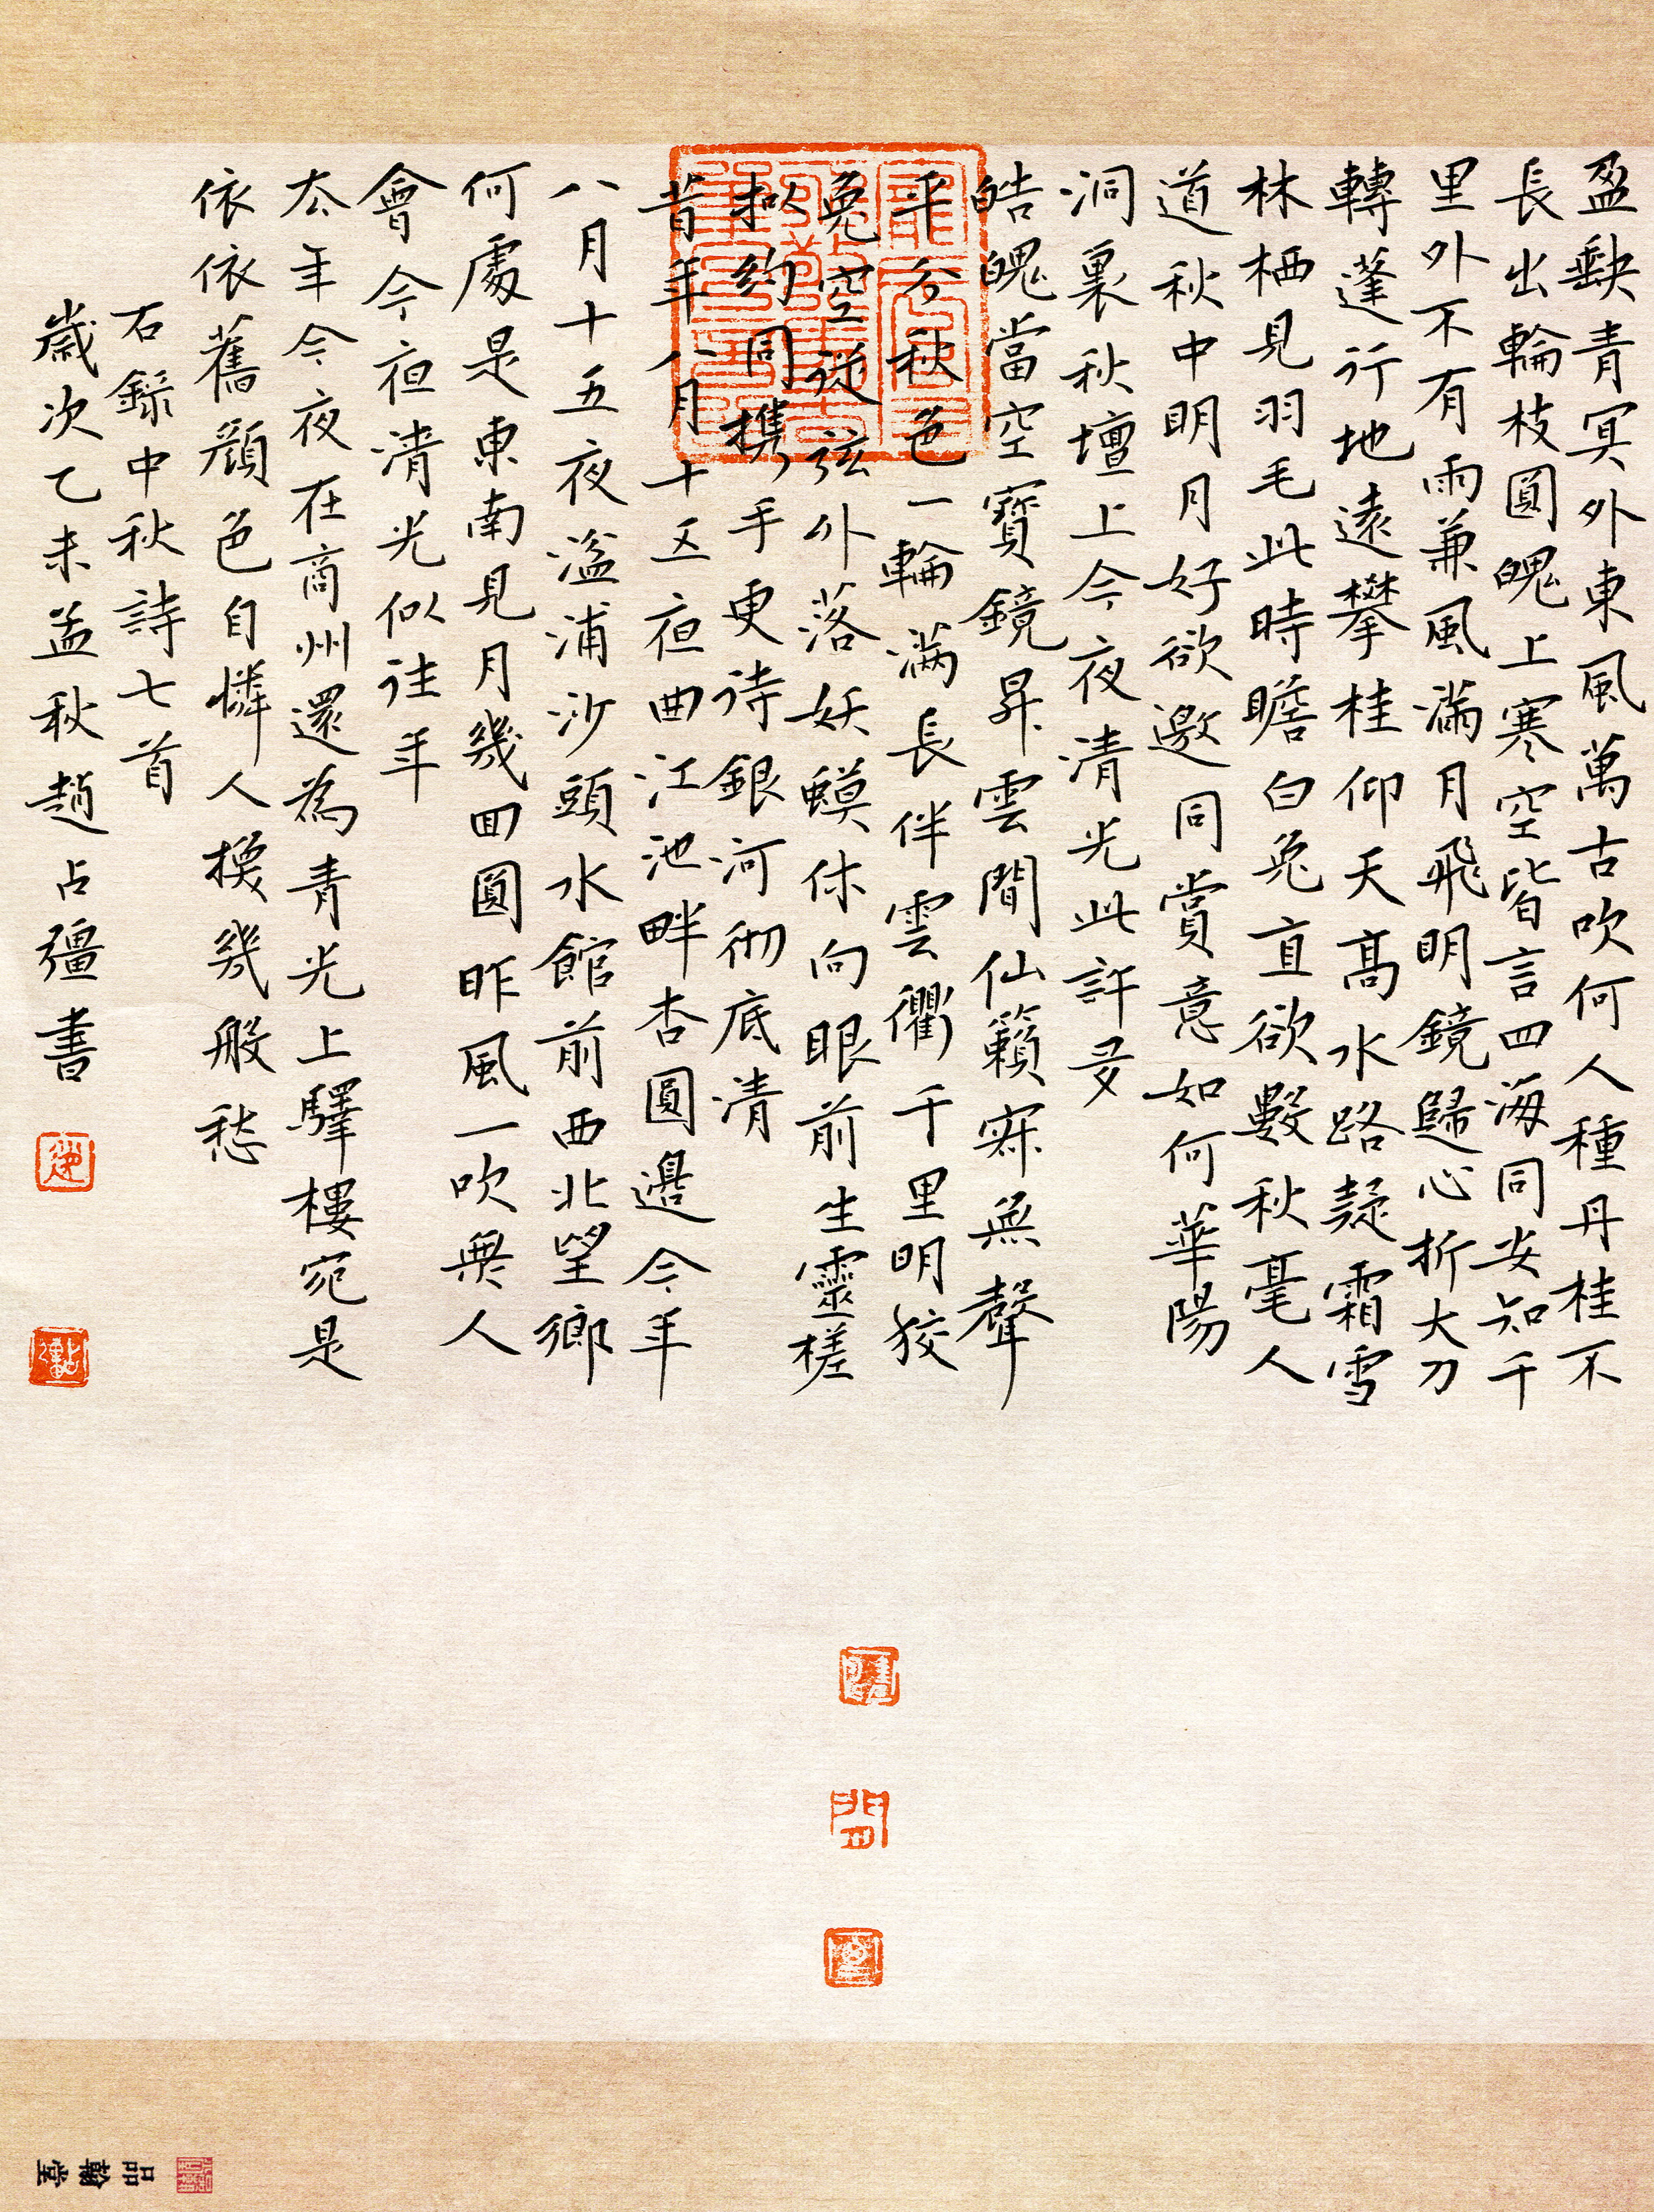 盈缺青冥外東風萬古吹何人種丹桂不
長出輪枝圓魄上寒空皆言四海同安知千
里外不有雨兼風滿月飛明鏡歸心折大刀
轉蓬行地遠攀桂仰天高水路疑霜雪
林栖見羽毛此時瞻白兔直欲數秋毫人
道秋中明月好欲邀同賞意如何華陽
洞裏秋壇上今夜清光此許多
皓魄當空寶鏡昇雲間仙籟寂無聲
平分秋色一輪滿長伴雲衢千里明狡
兔空從弦外落妖蟆休向眼前生靈槎
拟約同携手更待銀河彻底清
昔年八月十五夜曲江池畔杏圓邊今年
八月十五夜湓浦沙頭水館前西北望鄉
何處是東南見月幾回圓昨風一吹無人
會今夜清光似往年
厺年今夜在商州還為青光上驛樓宛是
依依舊顏色自憐人換幾般愁
右錄中秋詩七首
歲次乙未孟秋趙占彊書
品翰堂